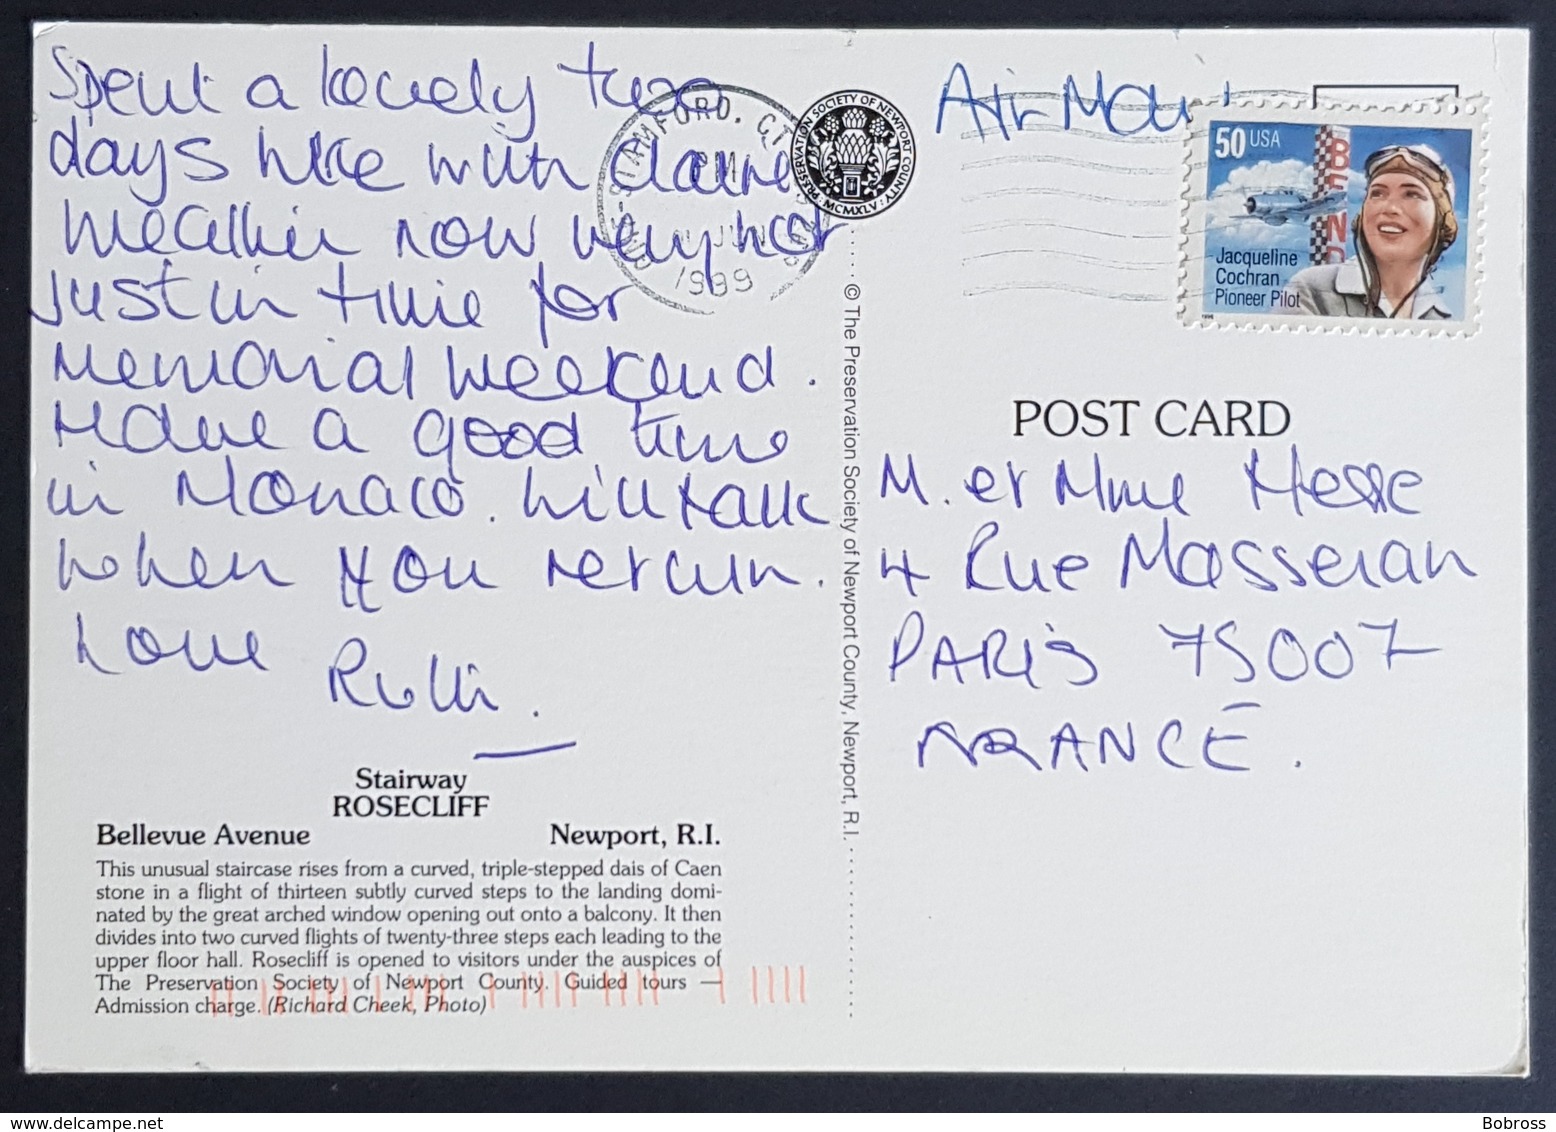 Spent a lovely two
days here with Claire
weather now very hot
just in time for
Memorial weekend.
Have a good time
in Monaco. Will talk
when you return.
Love
Stairway
ROSECLIFF
Bellevue Avenue Newport, R.I.
This unusual staircase rises from a curved, triple-stepped dais of Caen
stone in a flight of thirteen subtly curved steps to the landing domi-
nated by the great arched window opening out onto a balcony. It then
divides into two curved flights of twenty-three steps each leading to the
upper floor hall. Rosecliff is opened to visitors under the auspices of
The Preservation Society of Newport County. Guided tours —
Admission charge. (Richard Cheek, Photo)
STAMFORD, CT
PM
JUN
1999
PRESERVATION SOCIETY OF NEWPORT COUNTY · MCMXLV ·
© The Preservation Society of Newport County, Newport, R.I.
Air Mail
50 USA
BEND
Jacqueline
Cochran
Pioneer Pilot
1996
POST CARD
M. et Mme Hesse
4 Rue Masseran
PARIS 75007
FRANCE.
Bobross